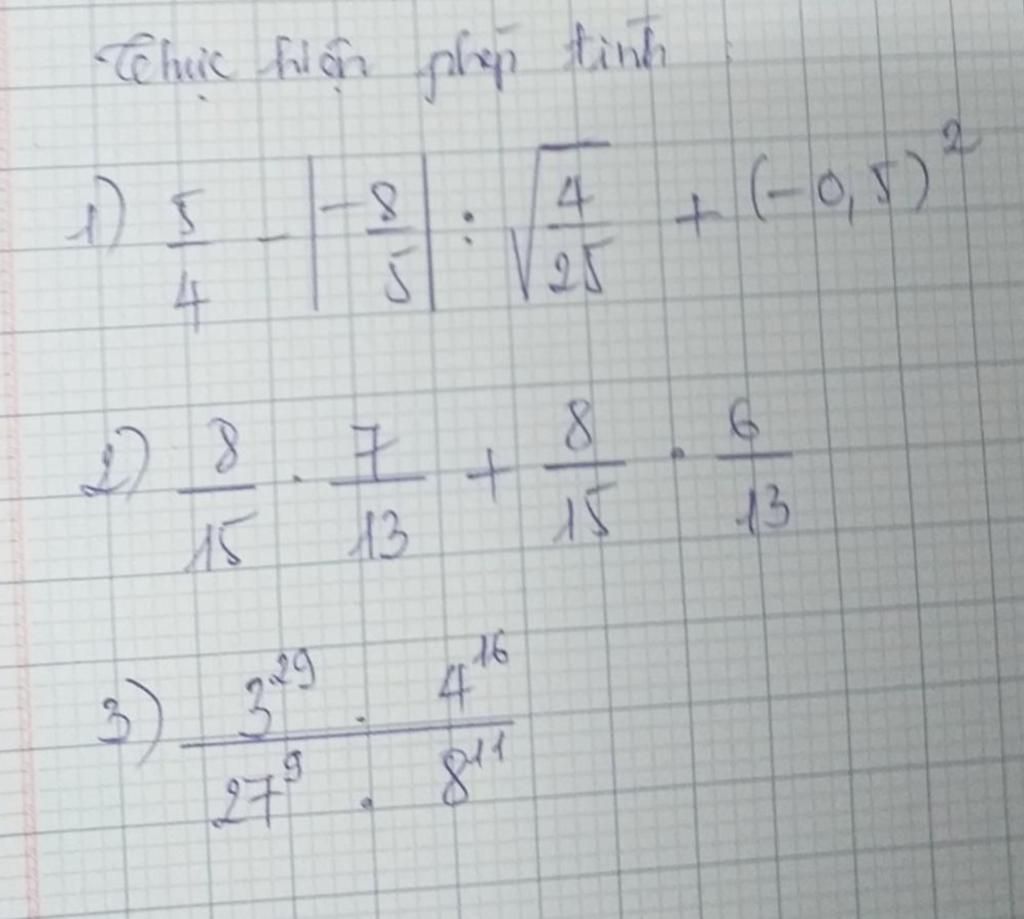 Thực hiện phép tính
1) 5/4 - |-8/5| : √(4/25) + (-0,5)²
2) 8/15 . 7/13 + 8/15 . 6/13
3) (3²⁹ . 4¹⁶)/(27⁹ . 8¹¹)